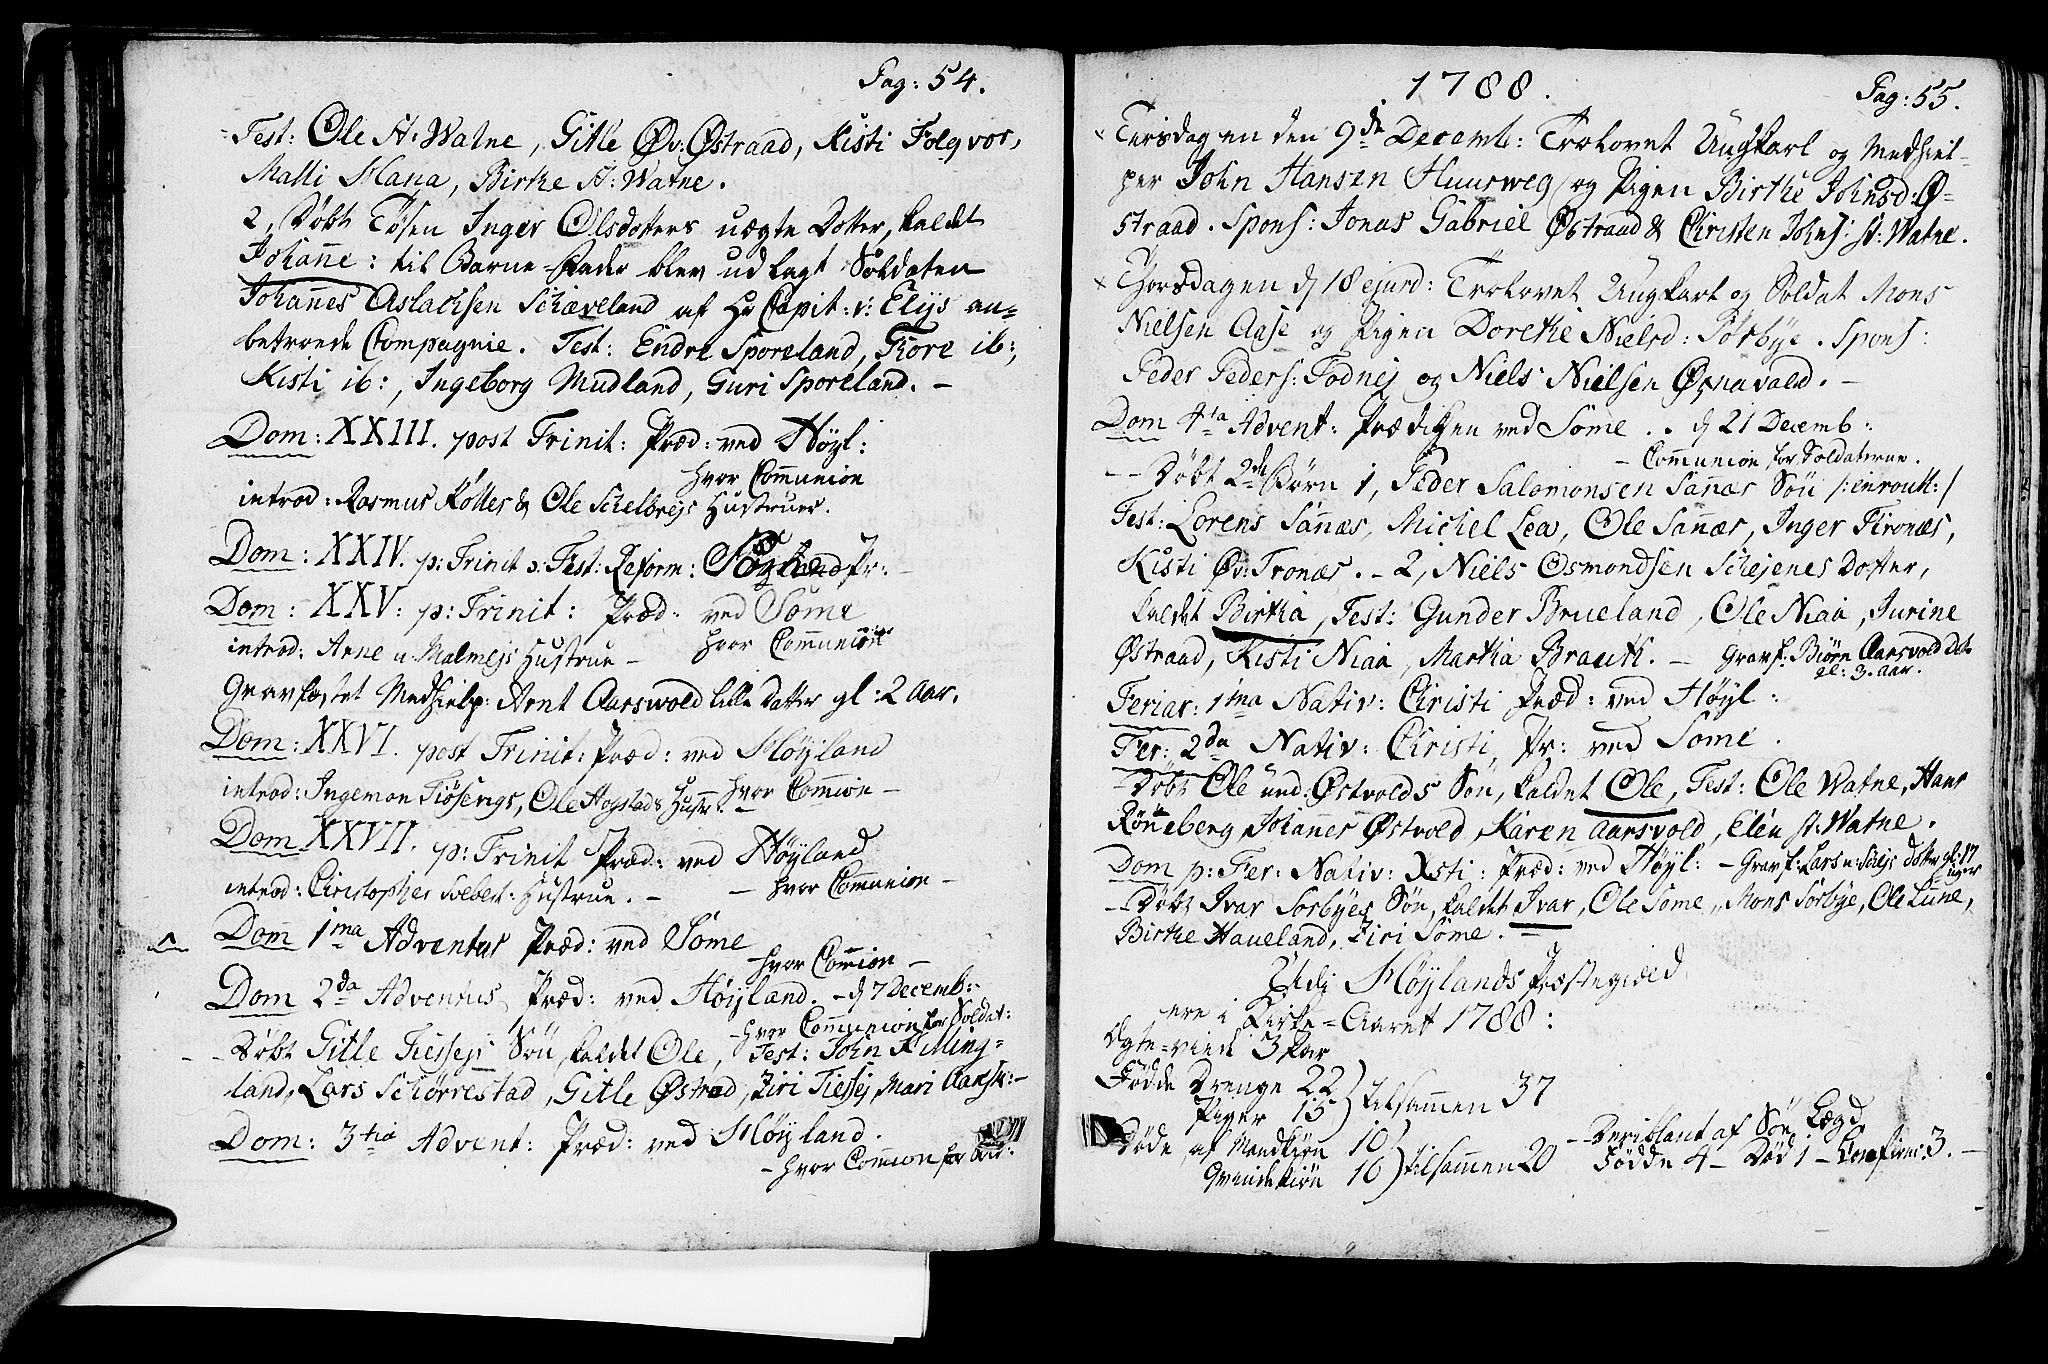 Pag: 54.
Test: Ole A: Watne, Gitle Øv: Østraad, Kisti Folgvor,
Malli Hana, Birke A: Watne.
2, Døbt Tøsen Inger Olsdotters uægte Dotter, kaldet
Johañe: til Barne-Fader blev udlagt Soldaten
Johañes Aslachsen Schæveland af Hr Capit: v: Elys an=
betroede Compagnie. Test: Endre Sporeland, Tore ib:,
Kisti ib:, Ingeborg Mudland, Guri Sporeland. -
Dom: XXIII. post Trinit: Præd: ved Høyl:
hvor Com̄union
introd: Rasmus Kølles & Ole Schelbrejs Hustruer.
Dom: XXIV. p: Trinit o: Fest: Reform: Pr:
Dom: XXV: p: Trinit: Præd: ved Some
hvor Com̄union
introd: Arne u: Malmejs Hustrue -
Gravfæstet Medhielp: Arnt Aarswold lille Datter gl: 2 Aar.
Dom: XXVI. post Trinit: Præd: ved Høyland
hvor Com̄ion -
introd: Ingeman Tiøsengs, Ole Hogstads Hustr. -
Dom XXVII. p: Trinit Præd: ved Høyland
- hvor Com̄union -
introd: Christopher Svebest: Hustrue. -
Dom 1ma Adventus Præd: ved Some
hvor Com̄ion -
Dom 2da Adventus Præd: ved Høyland. - d 7 Decemb:
hvor Com̄union for Soldat:
- Døbt Gitle Tiessejs Sön, kaldet Ole, Test: John Killing=
land, Lars Schørrestad, Gitle Østrad, Ziri Tiessej, Mari Aarsv: -
Dom: 3tia Advent: Præd: ved Høyland.
- hvor Com̄ion for
1788.
Pag: 55.
Tirsdagen den 9de Decemb: Trolovet Ungkarl og Medhiel-
per John Hansen Huusweg og Pigen Birthe Johnsd: Ø=
straad. Spons: Jonas Gabriel Østraad & Christen Johns: st: Watne.
Thorsdagen d 18 ejusd: Trolovet Ungkarl og Soldat Mons
Nielsen Aase og Pigen Dorethe Nielsd: Sorbye. Spons:
Peder Peders: Todnej og Niels Nielsen Ørnavald. -
Dom 4ta Advent: Prædiken ved Some . . d 21 Decemb:
- Com̄union for Soldaterne.
- - Døbt 2de Børn 1, Peder Salomonsen Sañæs Sön /: enroull: /
Test: Lorens Sañæs, Michel Lea, Ole Sañæs, Inger Tronæs,
Kisti Øv: Tronæs. - 2, Niels Osmondsen Schejenes Dotter,
kaldet Birtha, Test: Gunder Brueland, Ole Niaa, Jurine
Østraad, Kisti Niaa, Martha Brauth. - Gravf: Biørn Aarsvold Dot
gl: 3. aar.
Feriar: 1ma Nativ: Christi Præd: ved Høyl:
Fer: 2da Nativ: Christi, Pr: ved Some.
- Døbt Ole und: Østvolds Sön, kaldet Ole, Test: Ole Watne, Hans
Röñeberg, Johañes Østvold, Karen Aarsvold, Elen st: Watne.
Dom p: Fer: Nativ: Xsti: Præd: ved Høyl: - Gravf: Lars u: Dotter gl: 17
uger
- Døbt Ivar Sorbyes Søn, kaldet Ivar, Ole Some, Mons Sorbye, Ole Lune,
Birthe Haueland, Ziri Some. -
Udj Høylands Præstegield
ere i Kirke-Aaret 1788:
Ægte-viede 3 Par
Fødde Drenge 22
Piger 15 ) tilsam̄en 37
Døde af Mandkiön 10
Qvindekiön 10 ) tilsam̄en 20
- Deriblant af Søe Lægd
Fødde 4 - Død 1 - Confirm: 3. -